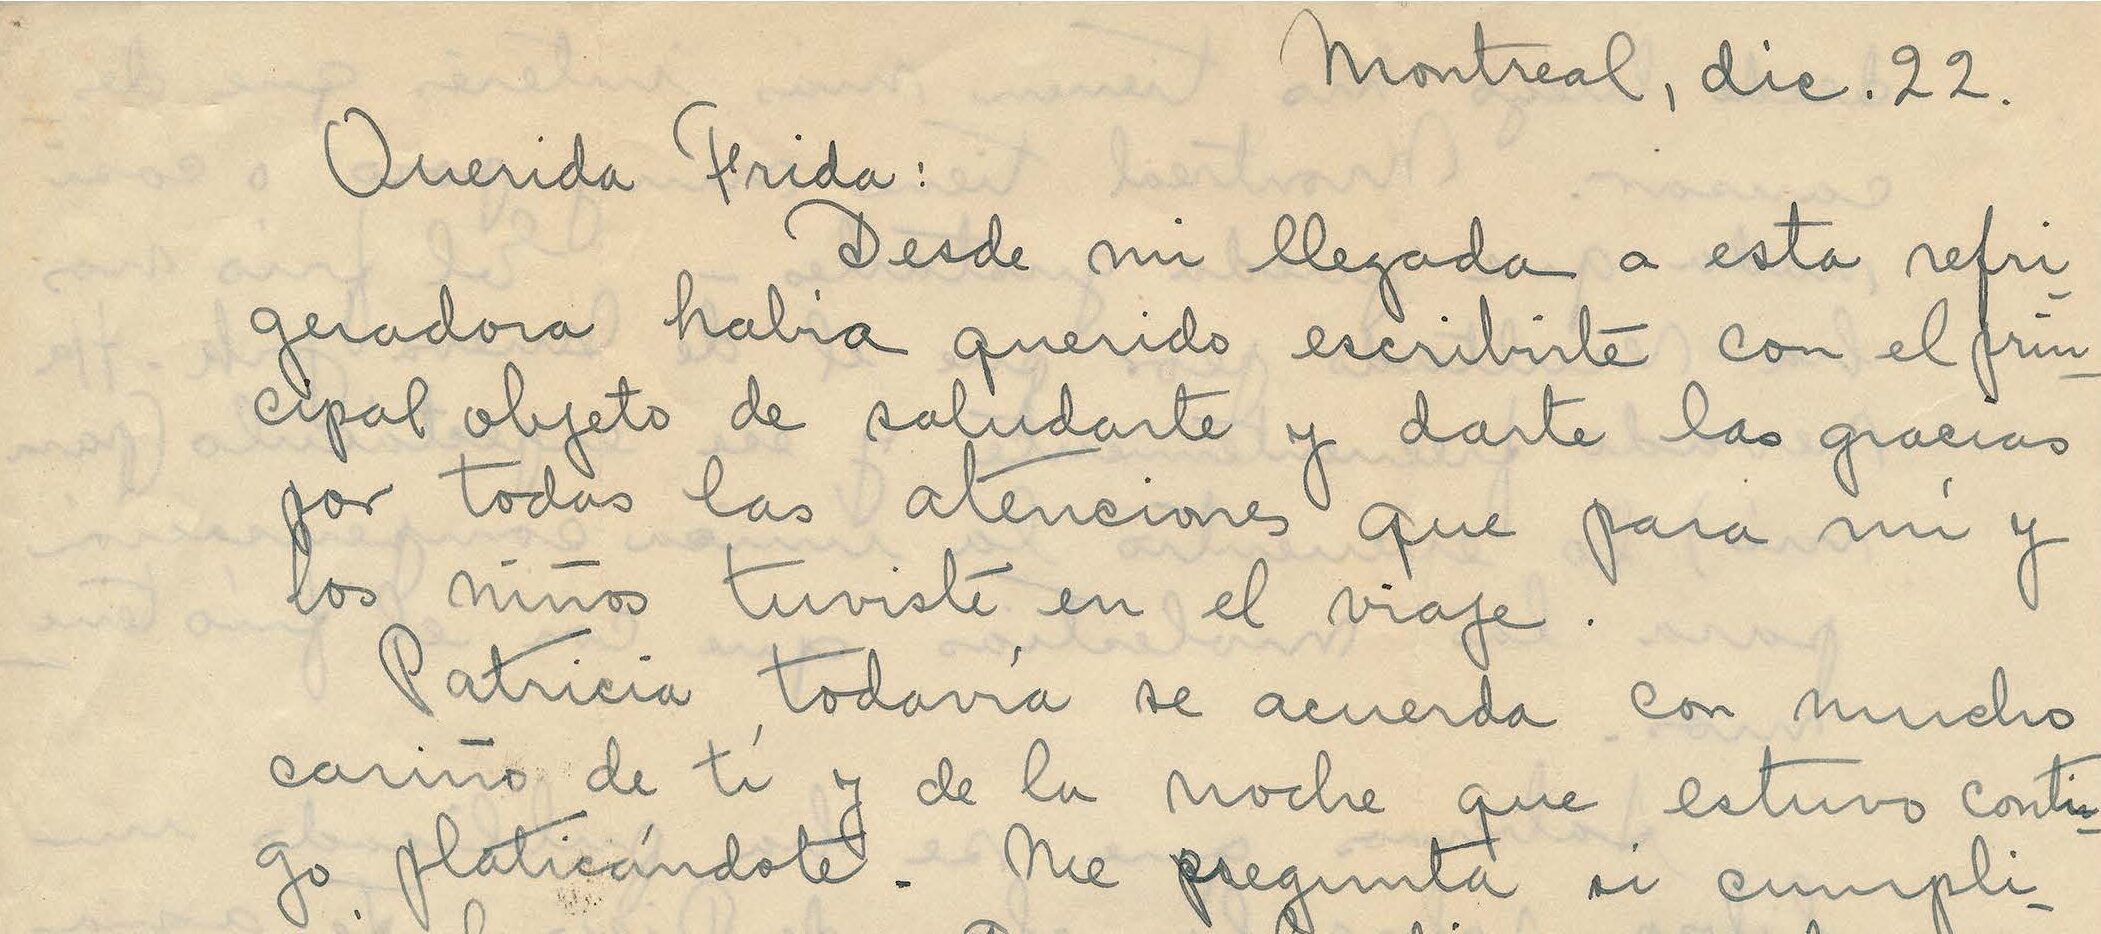 Montreal, dic. 22.
Querida Frida:
Desde mi llegada a esta refri
geradora había querido escribirte con el prin-
cipal objeto de saludarte y darte las gracias
por todas las atenciones que para mí y
los niños tuviste en el viaje.
Patricia todavía se acuerda con mucho
cariño de tí y de la noche que estuvo conti-
go platicándote. Me pregunta si cumpli-